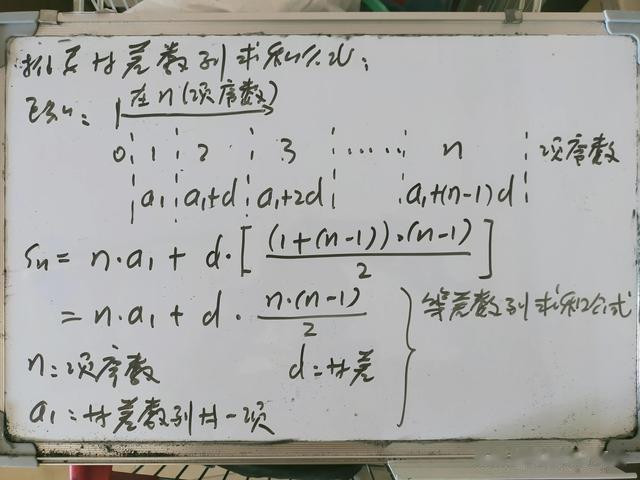 求等差数列求和公式:
已知: 在n(项序数)
0 1 2 3 …… n 项序数
a₁ a₁+d a₁+2d a₁+(n-1)d
Sn = n·a₁ + d·[(1+(n-1))·(n-1)/2]
= n·a₁ + d·n·(n-1)/2 等差数列求和公式
n=项序数 d=公差
a₁=等差数列第一项